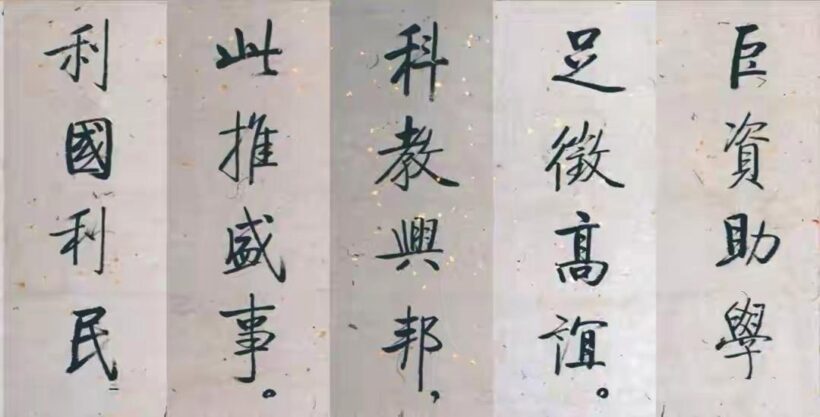 巨資助學
足徵高誼。
科教興邦，
此推盛事。
利國利民